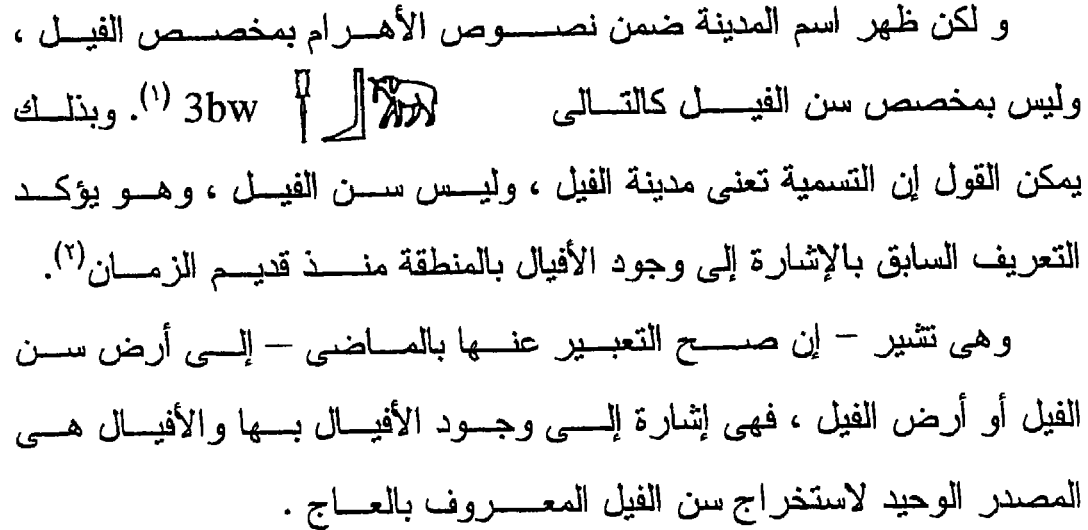 و لكن ظهر اسم المدينة ضمن نصوص الأهرام بمخصص الفيل ،
وليس بمخصص سن الفيل كالتالى 3bw (١). وبذلك
يمكن القول إن التسمية تعنى مدينة الفيل ، وليس سن الفيل ، وهو يؤكد
التعريف السابق بالإشارة إلى وجود الأفيال بالمنطقة منذ قديم الزمان(٢).
وهى تشير – إن صح التعبير عنها بالماضى – إلى أرض سن
الفيل أو أرض الفيل ، فهى إشارة إلى وجود الأفيال بها والأفيال هى
المصدر الوحيد لاستخراج سن الفيل المعروف بالعاج .